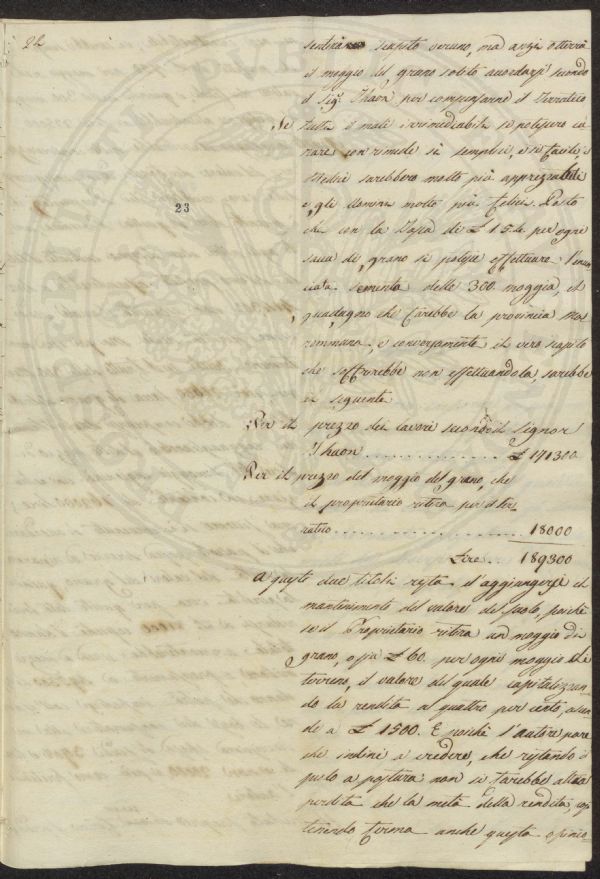 22
sentirà scapito veruno, ma anzi otterrà
il moggio del grano solito accordarsi secondo
il Sig.r Thaon per compensarne il Terratico
Se tutti i mali irrimediabili si potessero cu
rare con rimedi sì semplici, e sì facili, i
Medici sarebbero molto più apprezzabili
e gli Uomini molto più felici. Posto
che con la Tassa di £ 15. per ogni
sacca di grano si potesse effettuare l'enun
ciata sementa delle 300 moggia, il
guadagno che farebbe la provincia Ma
remmana, e conversamente il vero scapito
che soffrirebbe non effettuandola, sarebbe
il seguente
Per il prezzo dei lavori secondo il Signor
Thaon . . . . . . . . . . . . . . £ 171300.
Per il prezzo del moggio del grano, che
il proprietario ritira per il ter
ratico . . . . . . . . . . . . . . . . . . 18000
Lire . . . 189300
23
A queste due titoli resta d'aggiungersi il
mantenimento del valore del suolo, poichè
se il Proprietario ritira un moggio di
grano, o sia £ 60. per ogni moggio di
terreno, il valore del quale capitalizzan
do la rendita al quattro per cento, ascen
de a £ 1500. E poichè l'autore pare
che inclini a credere, che restando il
suolo a pastura non si farebbe altra
perdita che la metà della rendita, sos
tenendo ferma anche questa opinio